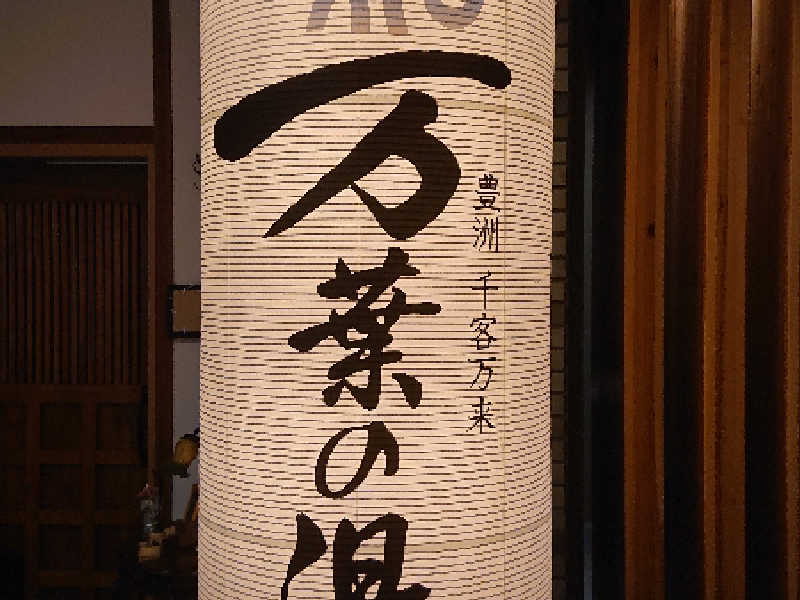 豊洲 千客万来
万葉の湯